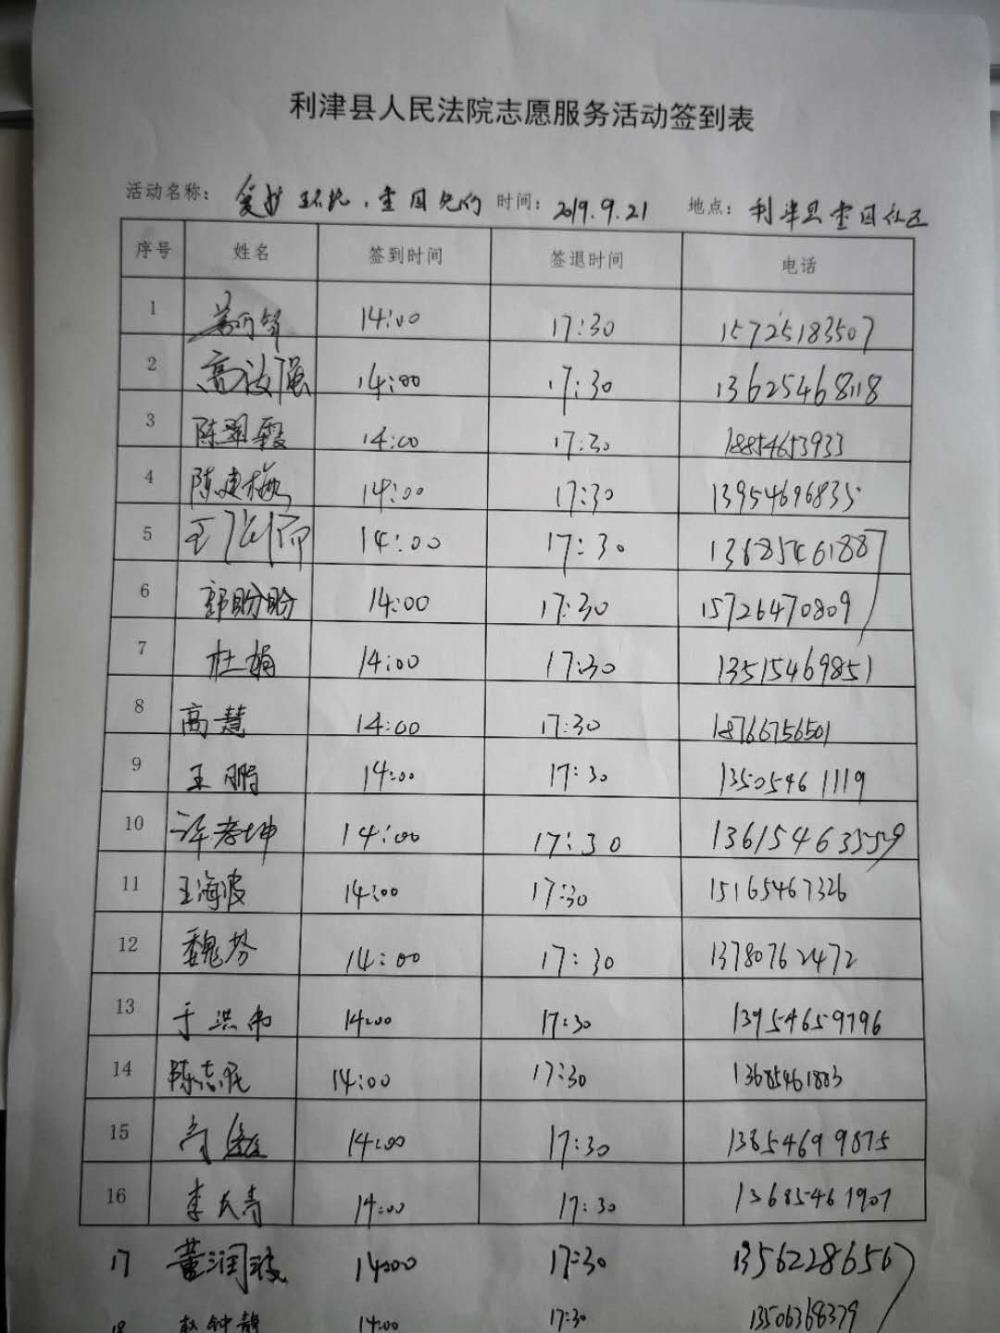 利津县人民法院志愿服务活动签到表
活动名称： 爱护环境， 时间： 2019.9.21 地点： 利津县社区
序号 姓名 签到时间 签退时间 电话
1 14:00 17:30 15725183507
2 高汝强 14:00 17:30 13625468118
3 陈翠霞 14:00 17:30 18854653933
4 陈建梅 14:00 17:30 13954696835
5 王 14:00 17:30 13685461887
6 郭盼盼 14:00 17:30 15726470809
7 杜娟 14:00 17:30 13515469851
8 高慧 14:00 17:30 18766756501
9 王鹏 14:00 17:30 13505461119
10 许孝坤 14:00 17:30 13615463559
11 王海波 14:00 17:30 15165467326
12 魏芬 14:00 17:30 13780762472
13 于洪伟 14:00 17:30 13954659796
14 陈志民 14:00 17:30 13685461883
15 14:00 17:30 13854699875
16 李长青 14:00 17:30 13685461907
17 董润波 14:00 17:30 13562286567
18 赵钟静 14:00 17:30 13506368379